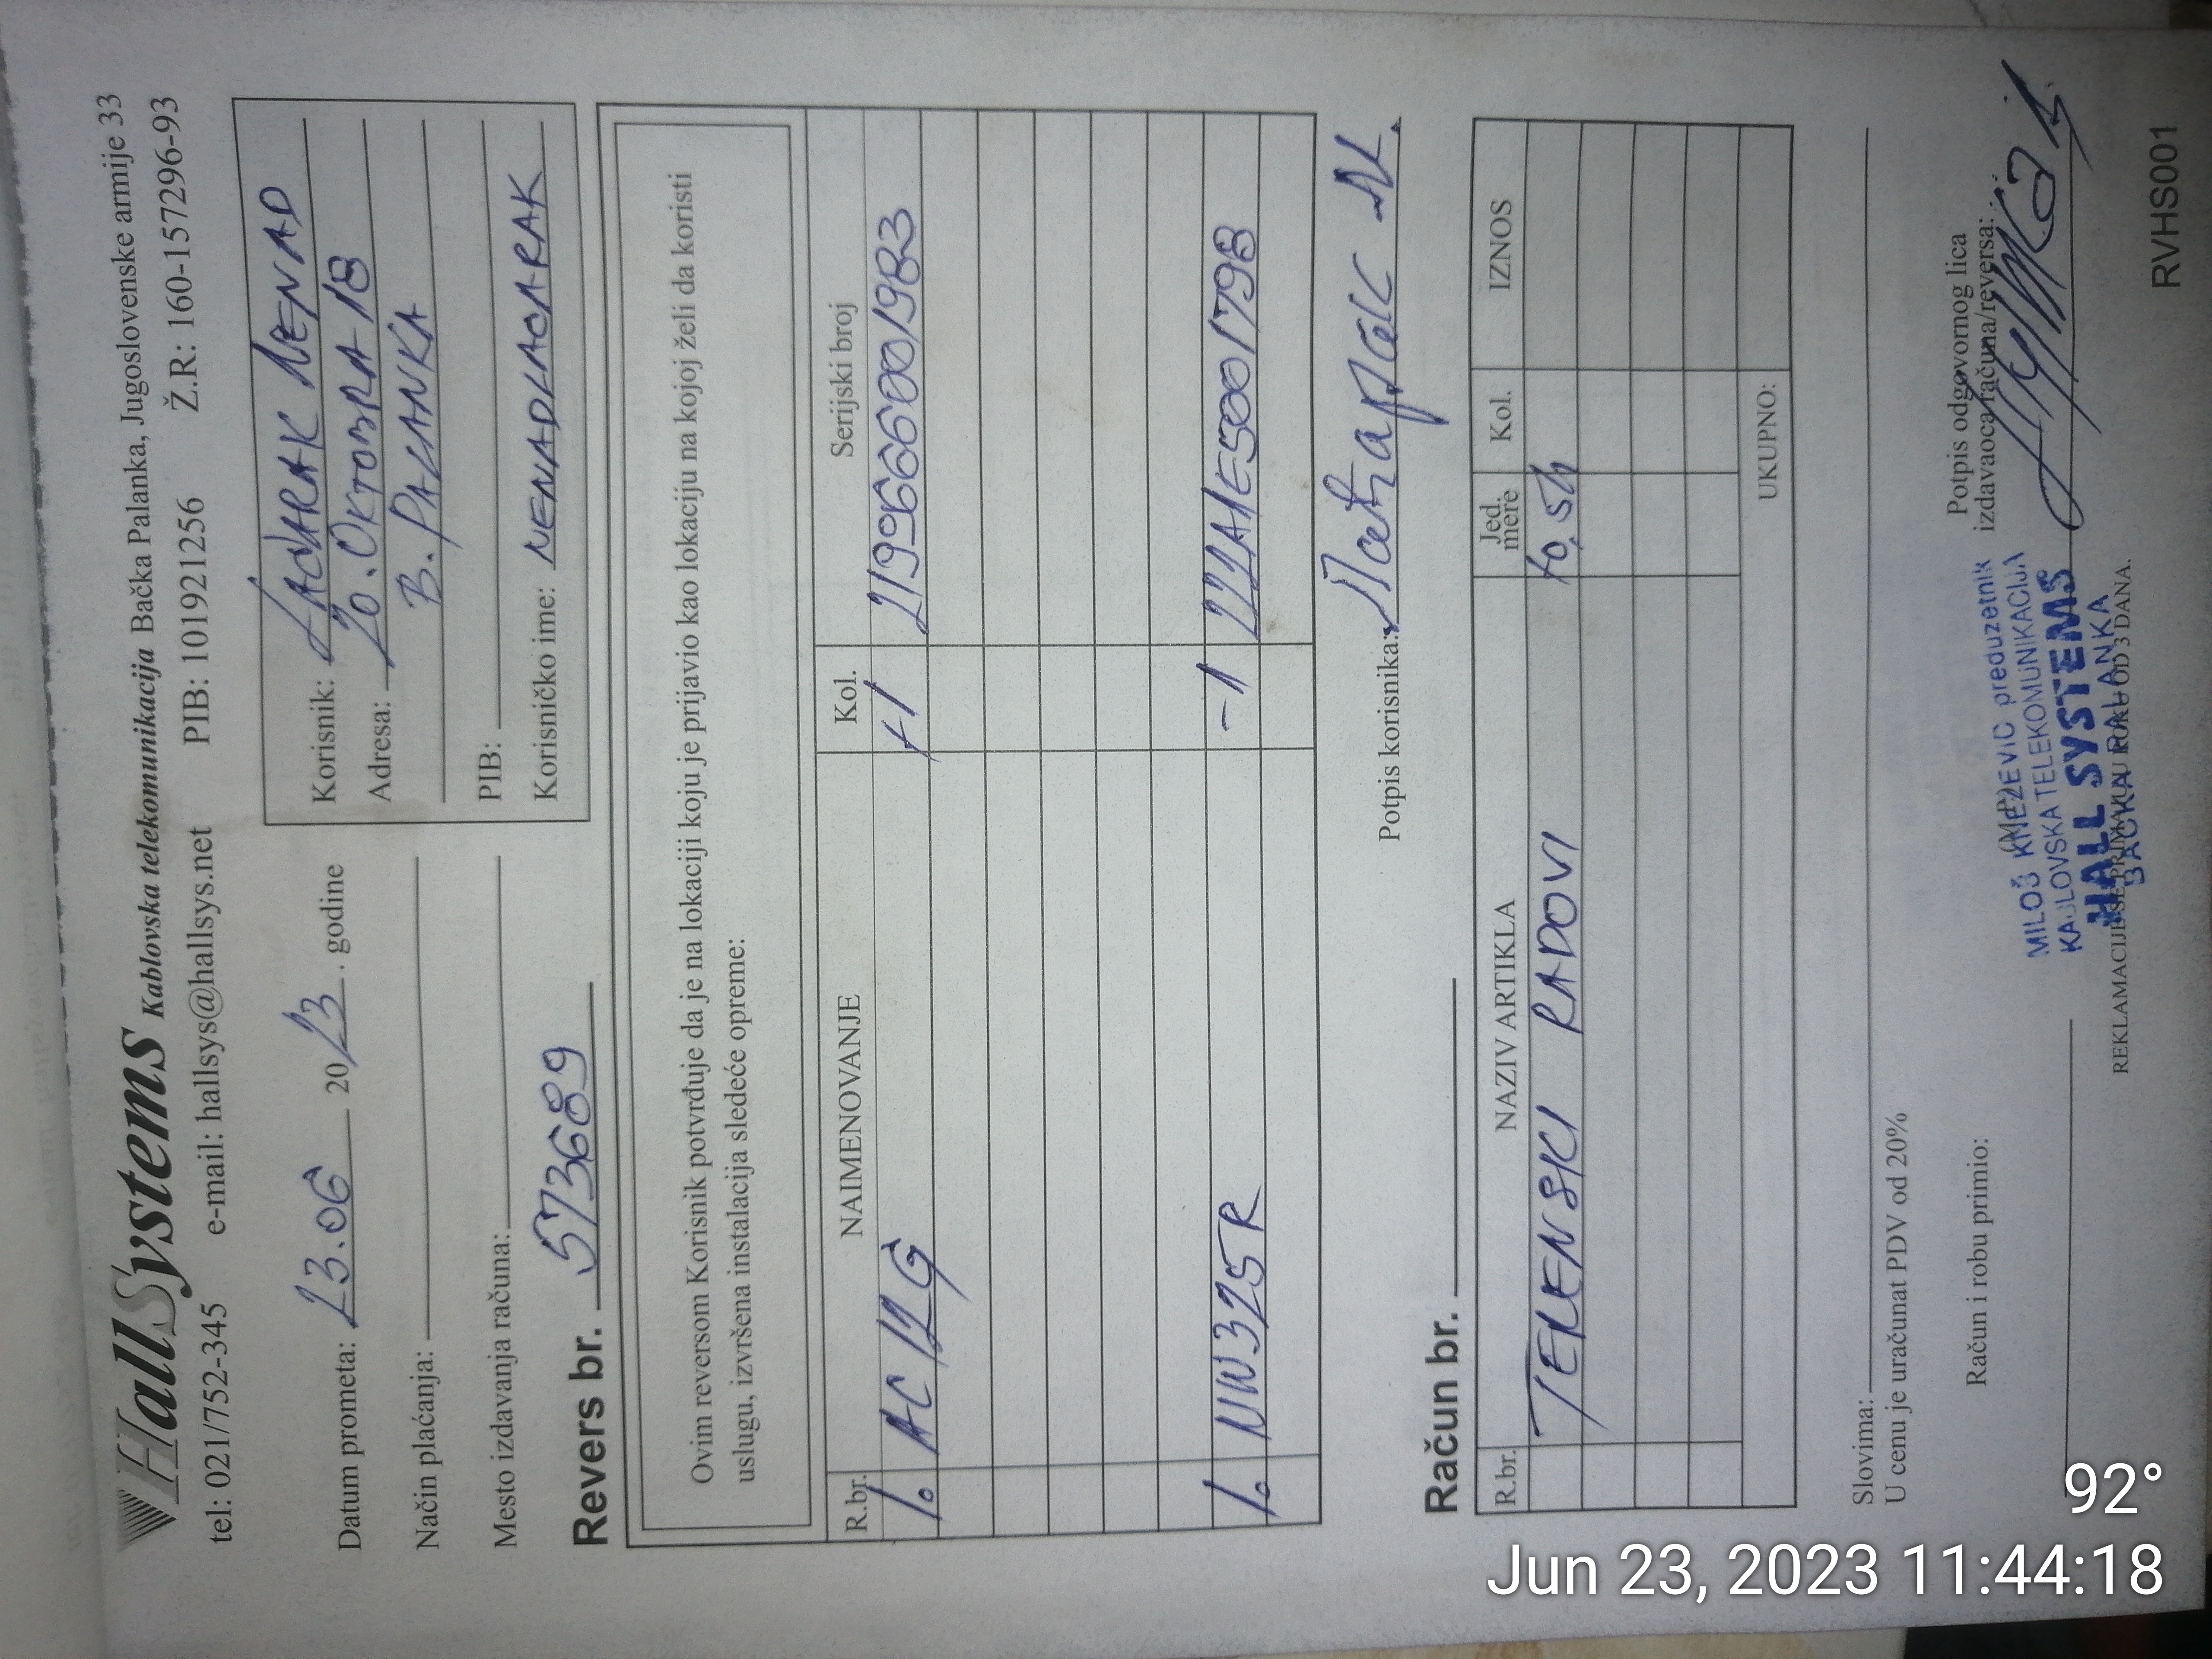 HallSystems Kablovska telekomunikacija Bačka Palanka, Jugoslovenske armije 33
tel: 021/752-345 e-mail: hallsys@hallsys.net PIB: 101921256 Ž.R: 160-157296-93
Datum prometa: 23.06 2023. godine
Način plaćanja:
Mesto izdavanja računa:
Korisnik: LAĆARAK NENAD
Adresa: 20. OKTOBRA 18
B. PALANKA
PIB:
Korisničko ime: NENADLACARAK
Revers br. 573689
Ovim reversom Korisnik potvrđuje da je na lokaciji koju je prijavio kao lokaciju na kojoj želi da koristi
uslugu, izvršena instalacija sledeće opreme:
R.br. NAIMENOVANJE Kol. Serijski broj
1. AC12G +1 2199666001983
1. NW325R -1 222A1E5001798
Potpis korisnika:
Račun br.
R.br. NAZIV ARTIKLA Jed. mere Kol. IZNOS
TERENSKI RADOVI
UKUPNO:
Slovima:
U cenu je uračunat PDV od 20%
Račun i robu primio:
Potpis odgovornog lica
izdavaoca računa/reversa:
MILOŠ KNEŽEVIĆ preduzetnik
KABLOVSKA TELEKOMUNIKACIJA
HALL SYSTEMS
BAČKA PALANKA
REKLAMACIJE SE PRIMAJU U ROKU OD 3 DANA.
RVHS001
92°
Jun 23, 2023 11:44:18